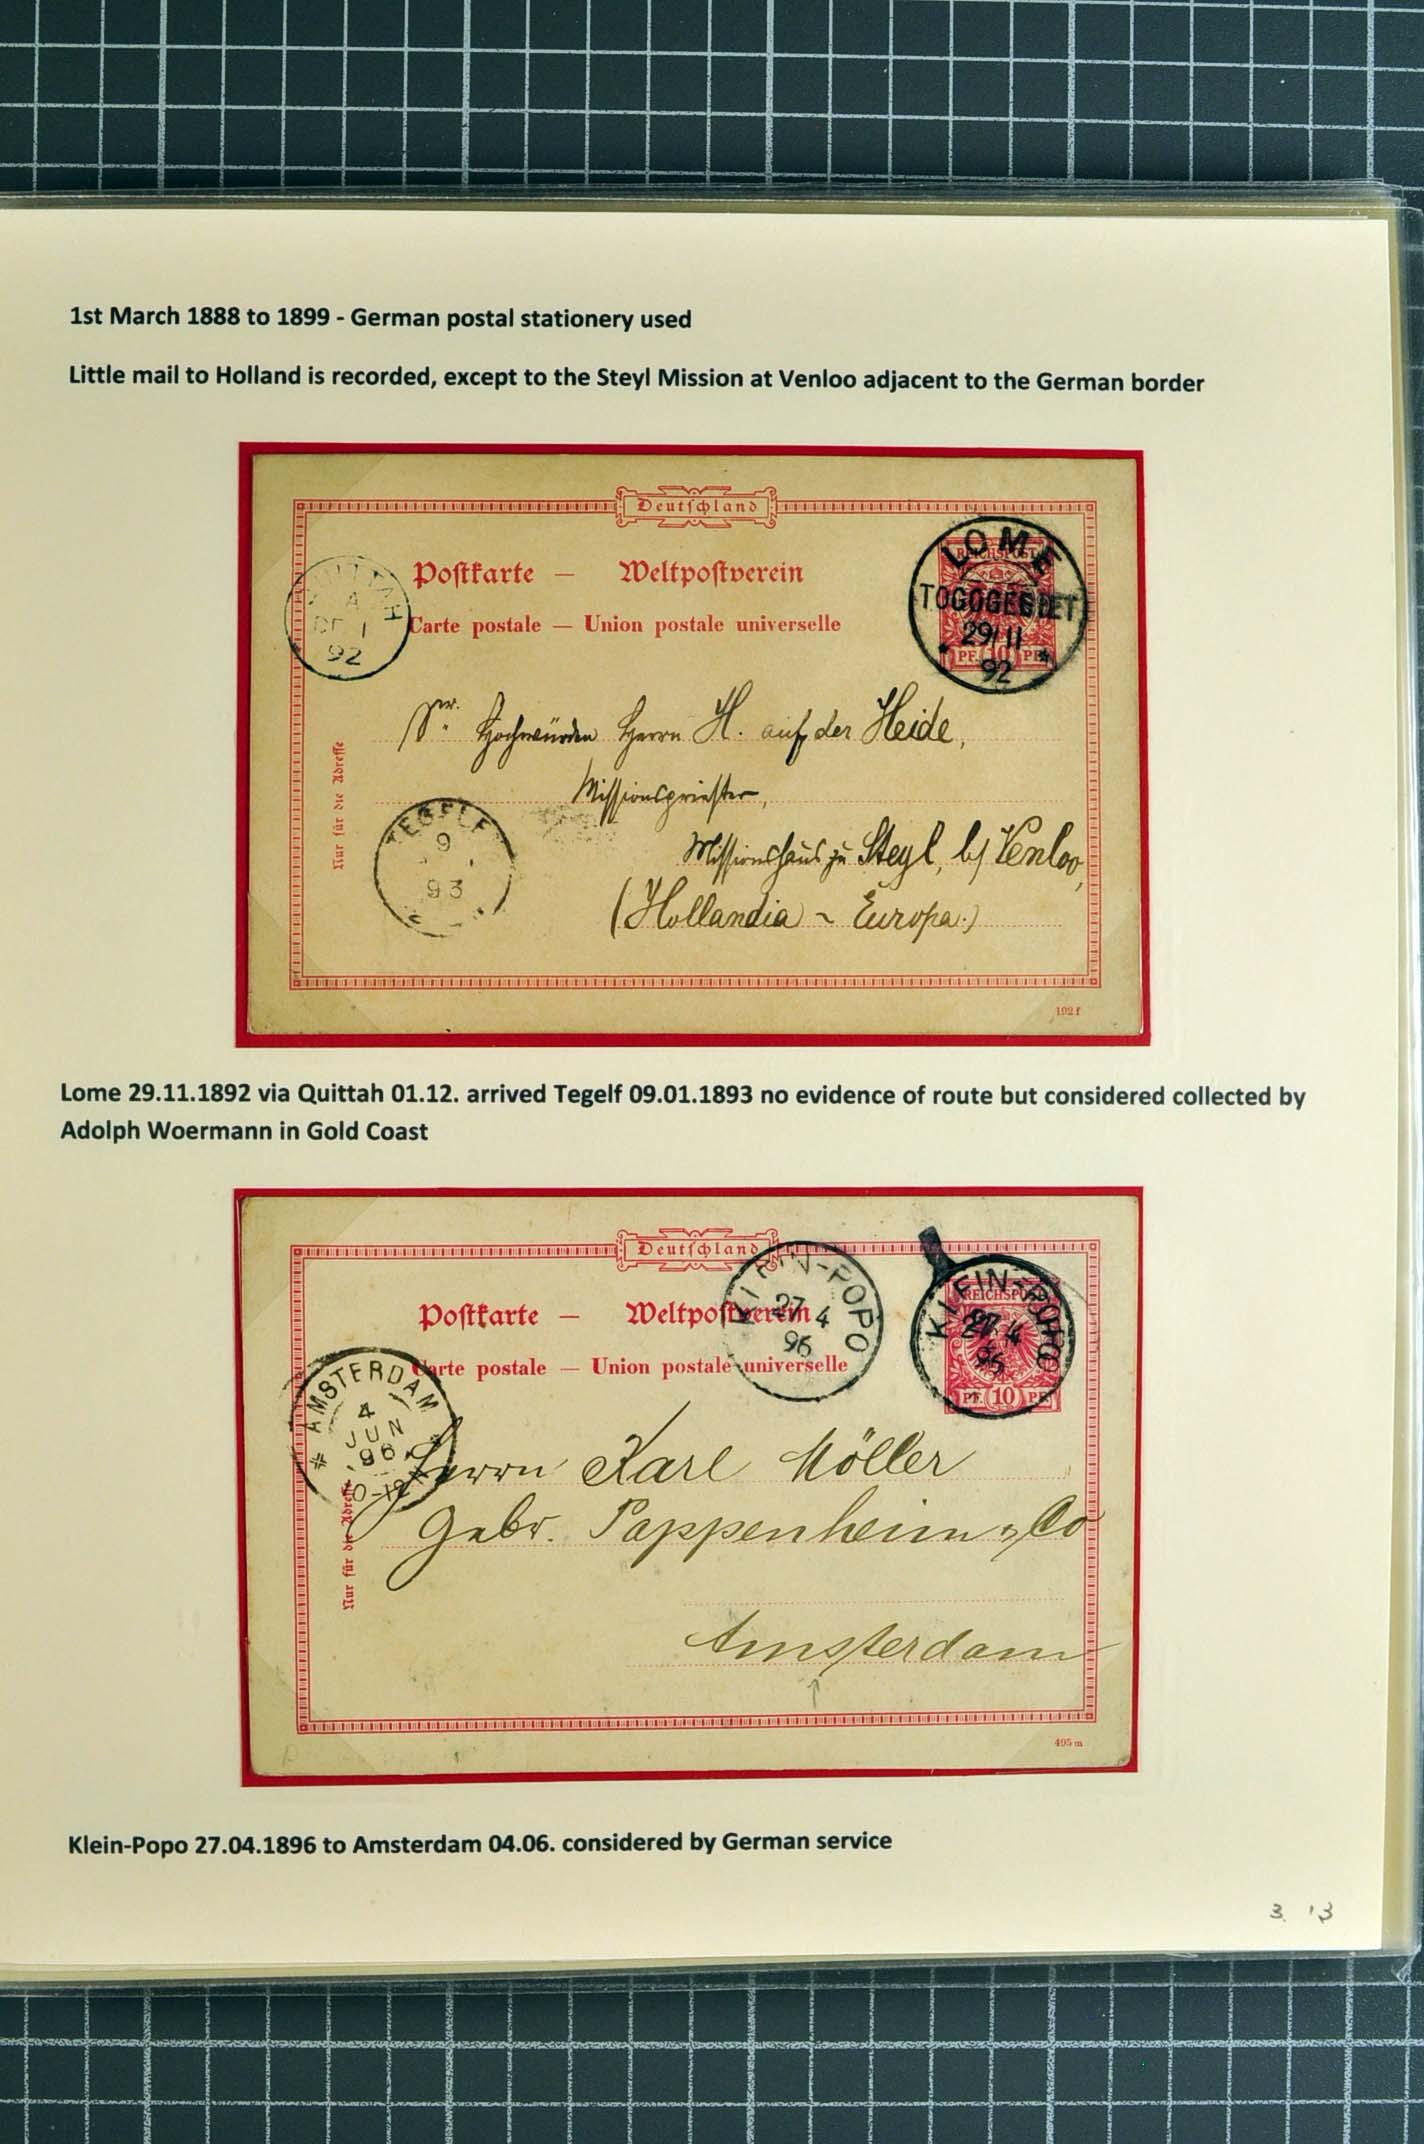 1st March 1888 to 1899 - German postal stationery used
Little mail to Holland is recorded, except to the Steyl Mission at Venloo adjacent to the German border
Deutschland
LOME
REICHSPOST
TOGOGEBIET
29/11
92
PF. 10 PF.
Postkarte — Weltpostverein
Carte postale — Union postale universelle
A
DE 1
92
Sr. Hochwürden Herrn H. auf der Heide,
Missionspriester,
Missionshaus zu Steyl, b/ Venloo,
(Hollandia ~ Europa.)
Nur für die Adresse
TEGELE
9
93
192 f
Lome 29.11.1892 via Quittah 01.12. arrived Tegelf 09.01.1893 no evidence of route but considered collected by
Adolph Woermann in Gold Coast
Deutschland
KLEIN-POPO
27 4
96
KLEIN-POPO
REICHSPOST
27 4
96
PF. 10 PF.
Postkarte — Weltpostverein
Carte postale — Union postale universelle
AMSTERDAM
4
JUN
96
10-12
Herrn Karl Möller
Gebr. Pappenheim & Co
Amsterdam
Nur für die Adresse
495 m
Klein-Popo 27.04.1896 to Amsterdam 04.06. considered by German service
3. 13